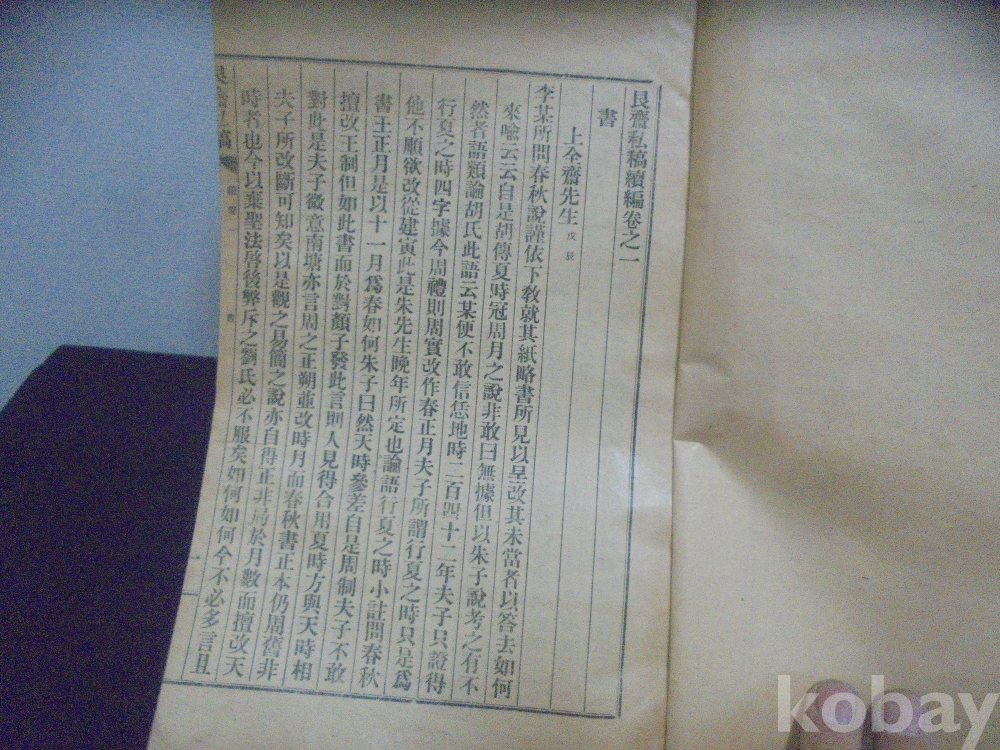 艮齋私稿續編卷之一
書
上全齋先生 戊辰
李某所問春秋說謹依下敎就其紙略書所見以呈改其未當者以答去如何
來喩云云自是胡傳夏時冠周月之說非敢曰無據但以朱子說考之有不
然者語類論胡氏此語云某便不敢信恁地時二百四十二年夫子只證得
行夏之時四字據今周禮則周實改作春正月夫子所謂行夏之時只是爲
他不順欲改從建寅此是朱先生晩年所定也論語行夏之時小註問春秋
書王正月是以十一月爲春如何朱子曰然天時參差自是周制夫子不敢
擅改王制但如此書而於對顏子發此言則人見得合用夏時方與天時相
對此是夫子微意南塘亦言周之正朔並改時月而春秋書正本仍周舊非
夫子所改斷可知矣以是觀之易簡之說亦自得正非局於月數而擅改天
時者也今以棄聖法啓後弊斥之劉氏必不服矣如何如何今不必多言且
艮齋私稿
書
一
kobay